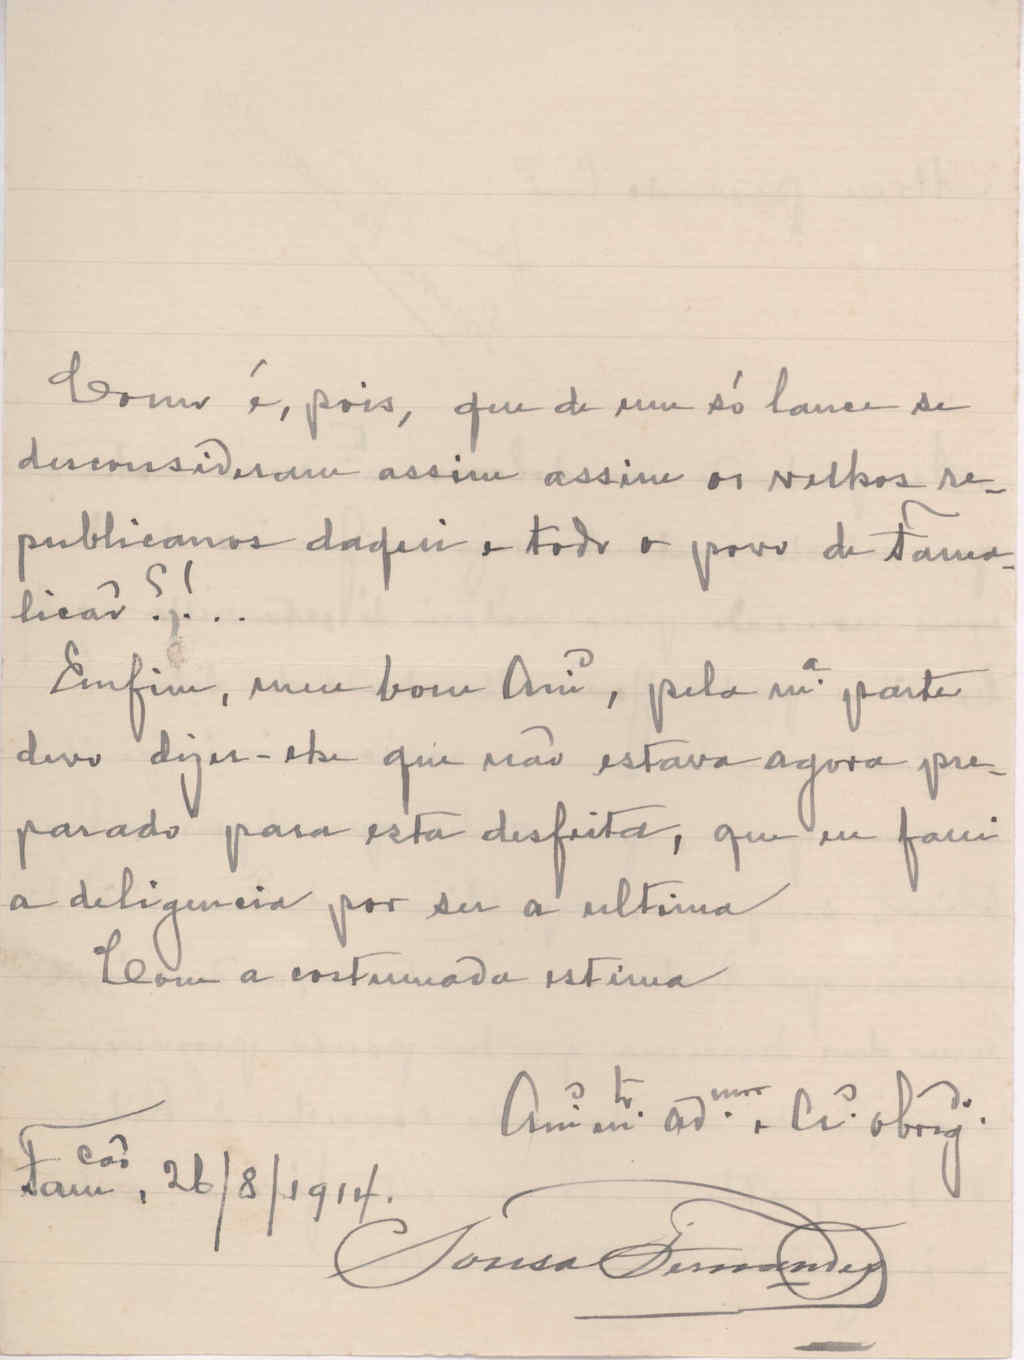 Como é, pois, que de um só lance se
desconsideram assim assim os velhos re-
publicanos daqui e todo o povo de Fama-
licão?!...
Emfim, meu bom Amº, pela m.ª parte
devo dizer-lhe que não estava agora pre-
parado para esta desfeita, que eu farei
a deligencia por ser a ultima
Com a costumada estima
Am.º m.to ad.mor e Cr.º obrig.do
Famcão, 26/8/1914.
Sousa Fernandes